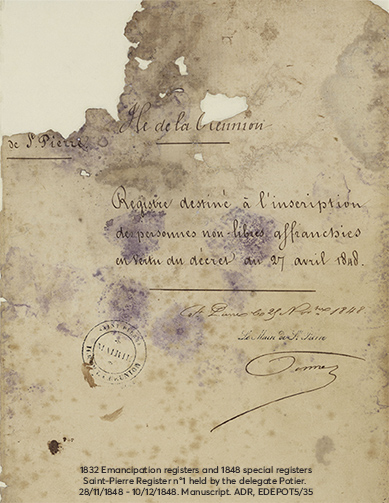 Ile de la Réunion
de St Pierre
Registre destiné à l'inscription
des personnes non-libres affranchies
en vertu du décret du 27 avril 1848.
le 25 Nov.bre 1848
Le Maire de St
MAIRIE
LA REUNION
1832 Emancipation registers and 1848 special registers
Saint-Pierre Register n°1 held by the delegate Potier.
28/11/1848 - 10/12/1848. Manuscript. ADR, EDÉPOT5/35